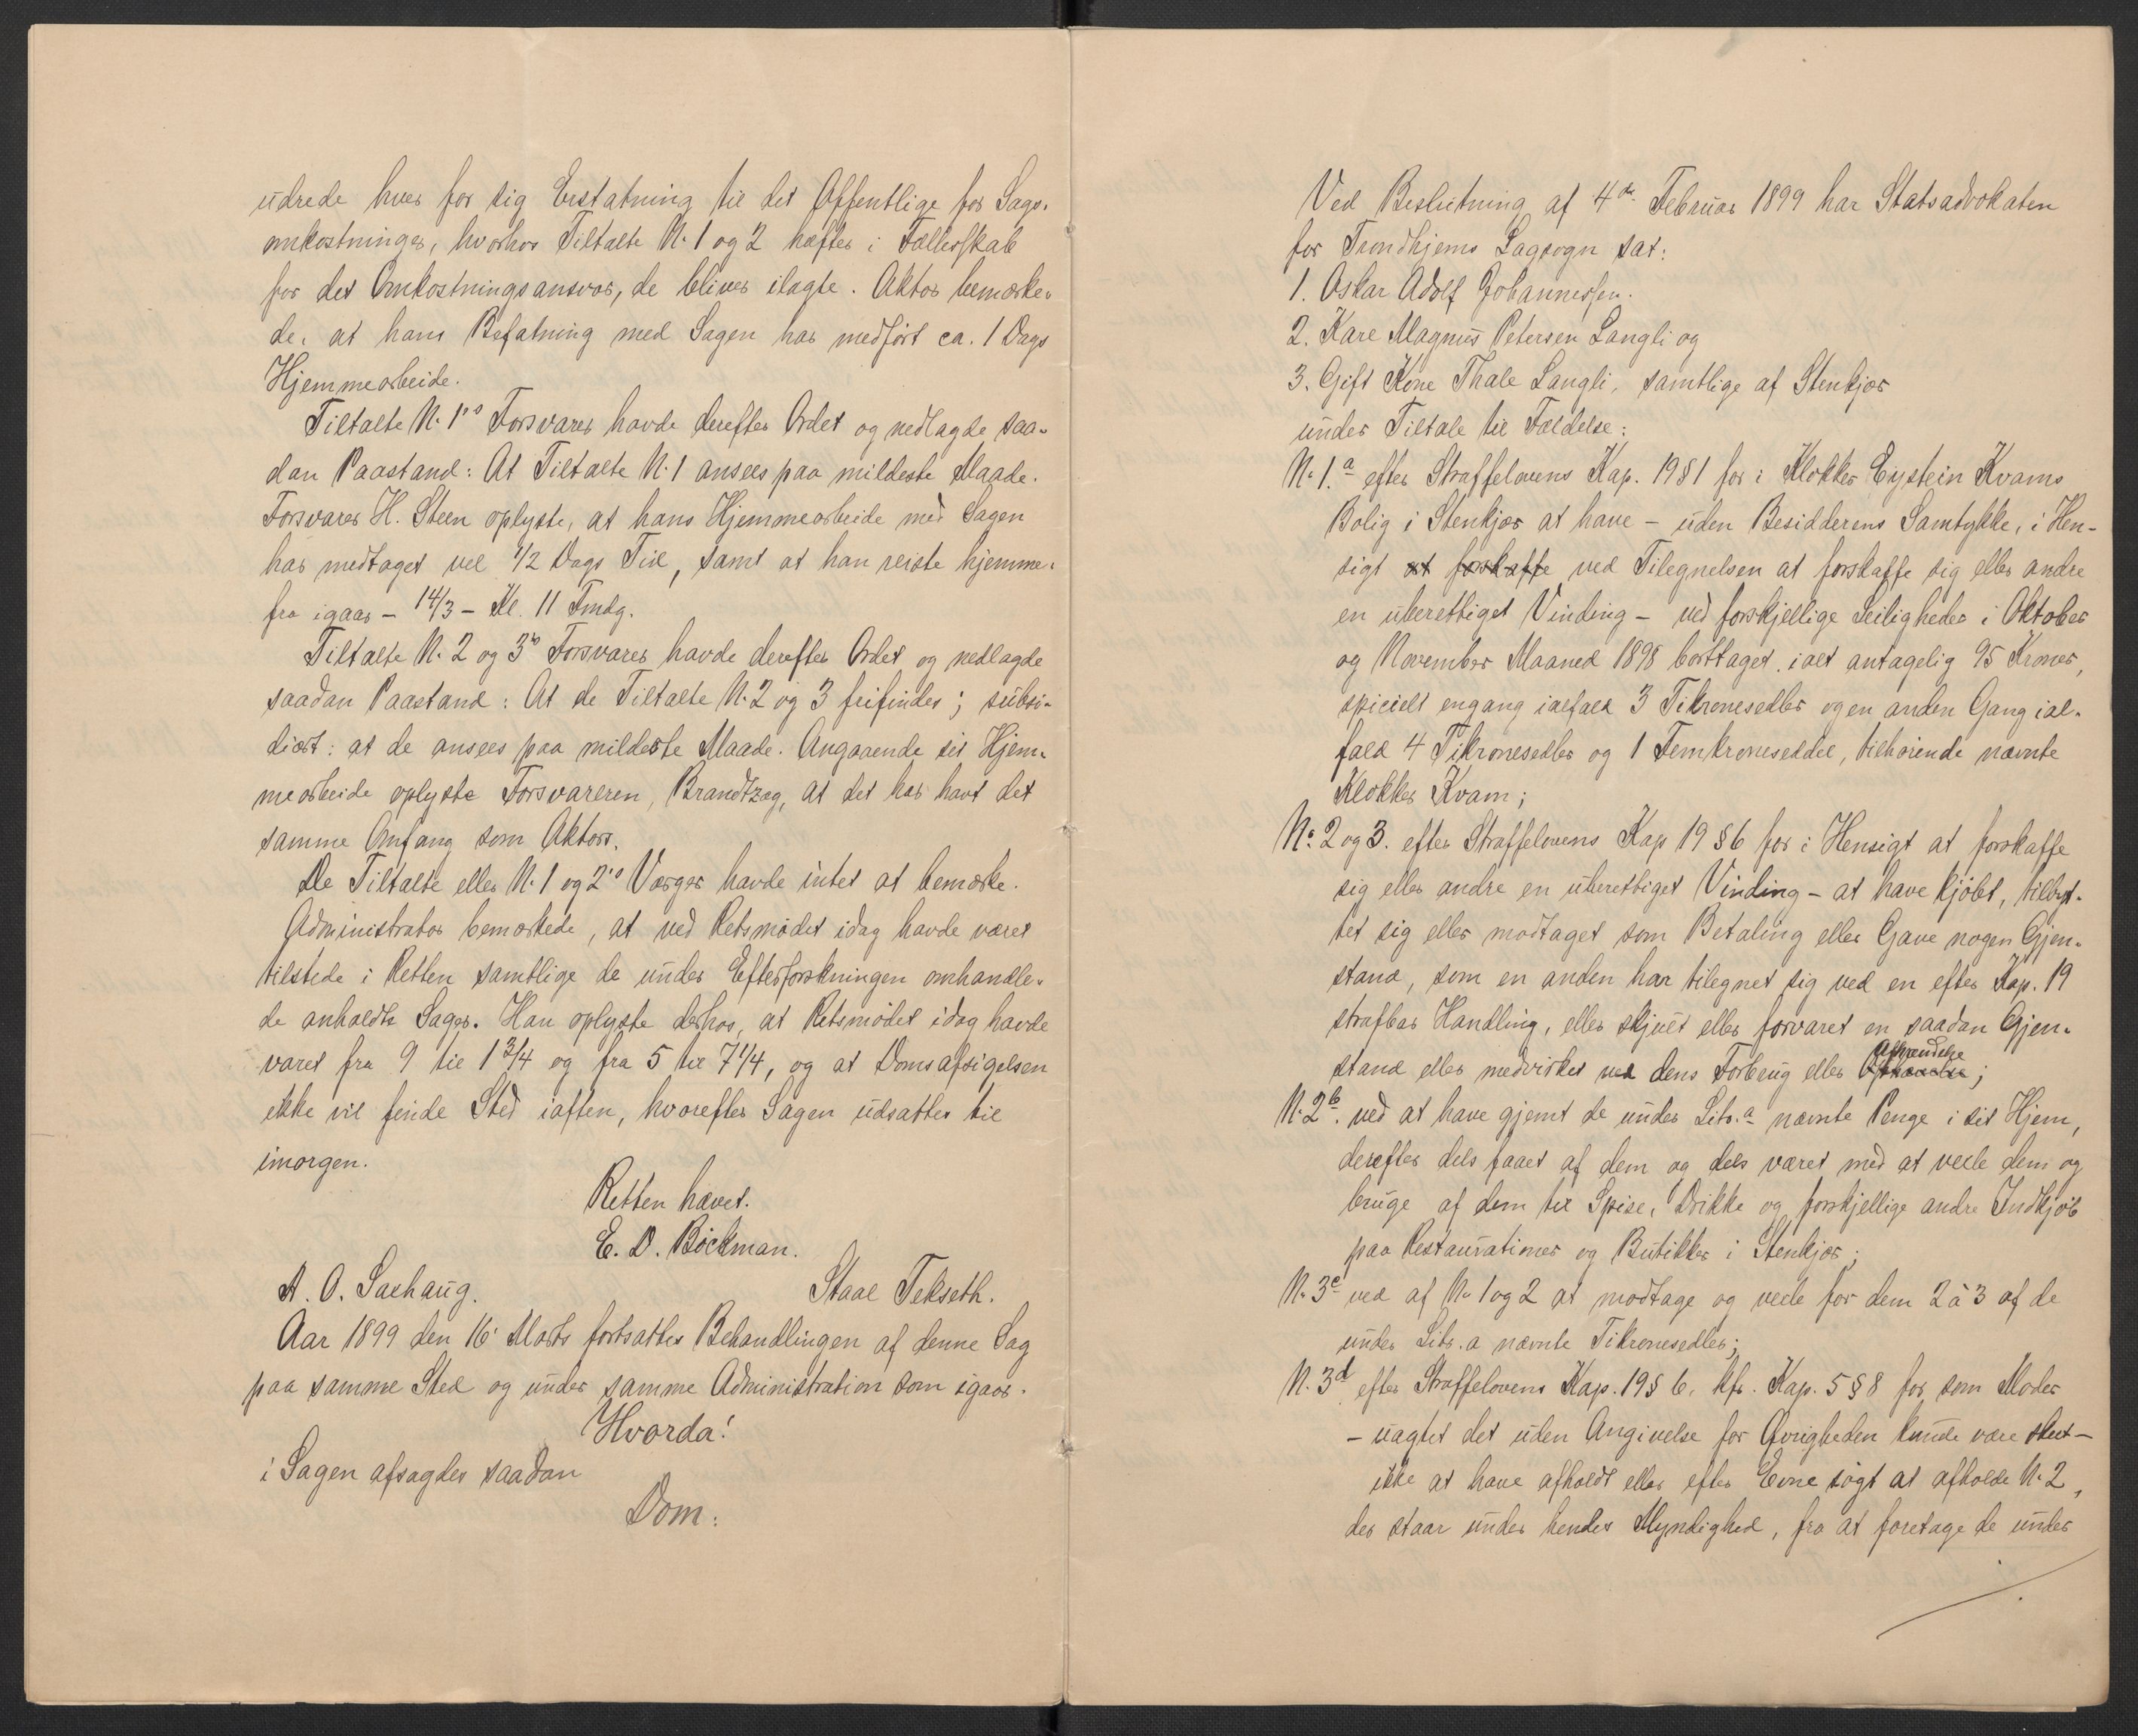 udrede hver for sig Erstatning til det Offentlige for Sags-
omkostninger, hvorhos Tiltalte N. 1 og 2 hæfter i Fællesskab
for det Omkostningsansvar, de bliver ilagte. Aktor bemærke-
de, at hans Befatning med Sagen har medført ca. 1 Dags
Hjemmearbeide.
Tiltalte N. 1's Forsvarer havde derefter Ordet og nedlagde saa-
dan Paastand: At Tiltalte N. 1 ansees paa mildeste Maade.
Forsvarer H. Steen oplyste, at hans Hjemmearbeide med Sagen
har medtaget vel 1/2 Dags Tid, samt at han reiste hjemme-
fra igaar - 14/3 - Kl. 11 Fmdg.
Tiltalte N. 2 og 3s Forsvarer havde derefter Ordet og nedlagde
saadan Paastand: At de Tiltalte N. 2 og 3 frifindes; subsi-
diært: at de ansees paa mildeste Maade. Angaaende sit Hjem-
mearbeide oplyste Forsvareren, Brandtzæg, at det har havt det
samme Omfang som Aktors.
De Tiltalte eller N. 1 og 2's Værger havde intet at bemærke.
Administrator bemærkede, at ved Retsmødet idag havde været
tilstede i Retten samtlige de under Efterforskningen omhandle-
de anholdte Sager. Han oplyste derhos, at Retsmødet idag havde
varet fra 9 til 1 3/4 og fra 5 til 7 1/4, og at Domsafsigelsen
ikke vil finde Sted iaften, hvorefter Sagen udsattes til
imorgen.
Retten hævet.
E. D. Böckman.
A. O. Saehaug. Staal Tekseth.
Aar 1899 den 16' Marts fortsattes Behandlingen af denne Sag
paa samme Sted og under samme Administration som igaar.
Hvorda!
i Sagen afsagdes saadan
Dom:
Ved Beslutning af 4de Februar 1899 har Statsadvokaten
for Trondhjems Lagsogn sat:
1. Oskar Adolf Johannessen.
2. Kare Magnus Petersen Langli og
3. Gift Kone Thale Langli, samtlige af Stenkjær
under Tiltale til Fældelse:
N. 1.a efter Straffelovens Kap. 19 § 1 for i Klokker Eystein Kvams
Bolig i Stenkjær at have - uden Besidderens Samtykke, i Hen-
sigt at forskaffe ved Tilegnelsen at forskaffe sig eller andre
en uberettiget Vinding - ved forskjellige Leiligheder i Oktober
og November Maaned 1898 borttaget ialt antagelig 95 Kroner,
specielt engang ialfald 3 Tikronesedler og en anden Gang ial-
fald 4 Tikronesedler og 1 Femkroneseddel, tilhørende nævnte
Klokker Kvam;
N. 2 og 3. efter Straffelovens Kap 19 § 6 for i Hensigt at forskaffe
sig eller andre en uberettiget Vinding - at have kjøbt, tilbyt-
tet sig eller modtaget som Betaling eller Gave nogen Gjen-
stand, som en anden har tilegnet sig ved en efter Kap. 19
strafbar Handling, eller skjult eller forvaret en saadan Gjen-
stand eller medvirket ved dens Forbrug eller Afhændelse;
N. 2b. ved at have gjemt de under Litr. a nævnte Penge i sit Hjem,
derefter dels faaet af dem og dels været med at vexle dem og
bruge af dem til Spise, Drikke og forskjellige andre Indkjøb
paa Restaurationer og Butikker i Stenkjær;
N. 3c ved af N. 1 og 2 at modtage og vexle for dem 2 à 3 af de
under Litr. a nævnte Tikronesedler;
N. 3d efter Straffelovens Kap. 19 § 6, kfr. Kap. 5 § 8 for som Moder
- uagtet det uden Angivelse for Øvrigheden kunde være skeet -
ikke at have afholdt eller efter Evne søgt at afholde N. 2,
der staar under hendes Myndighed, fra at foretage de under